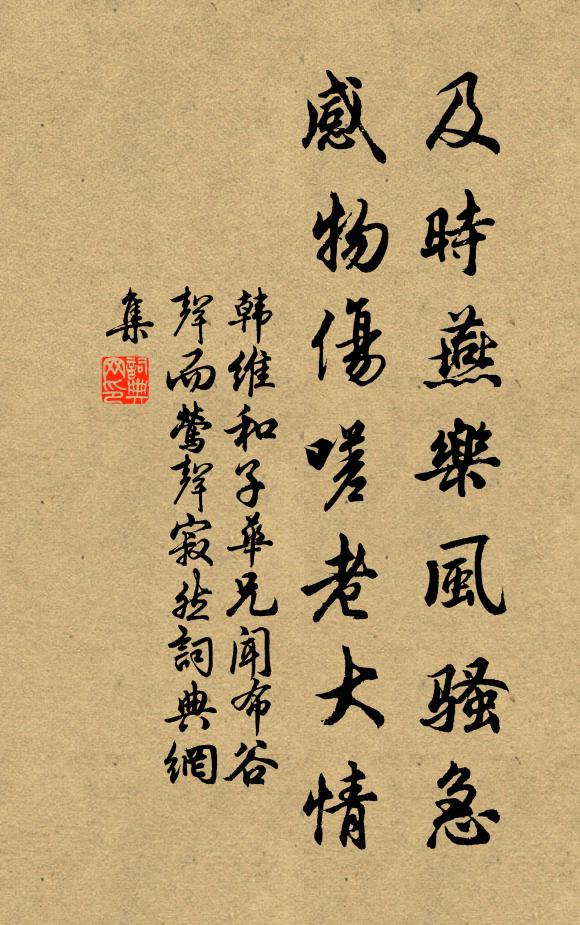 及時燕樂風騷急
感物傷嗟老大情
韩維和子華兄闻布谷
聲而鶯聲寂然詞典網
集
詞典
网印